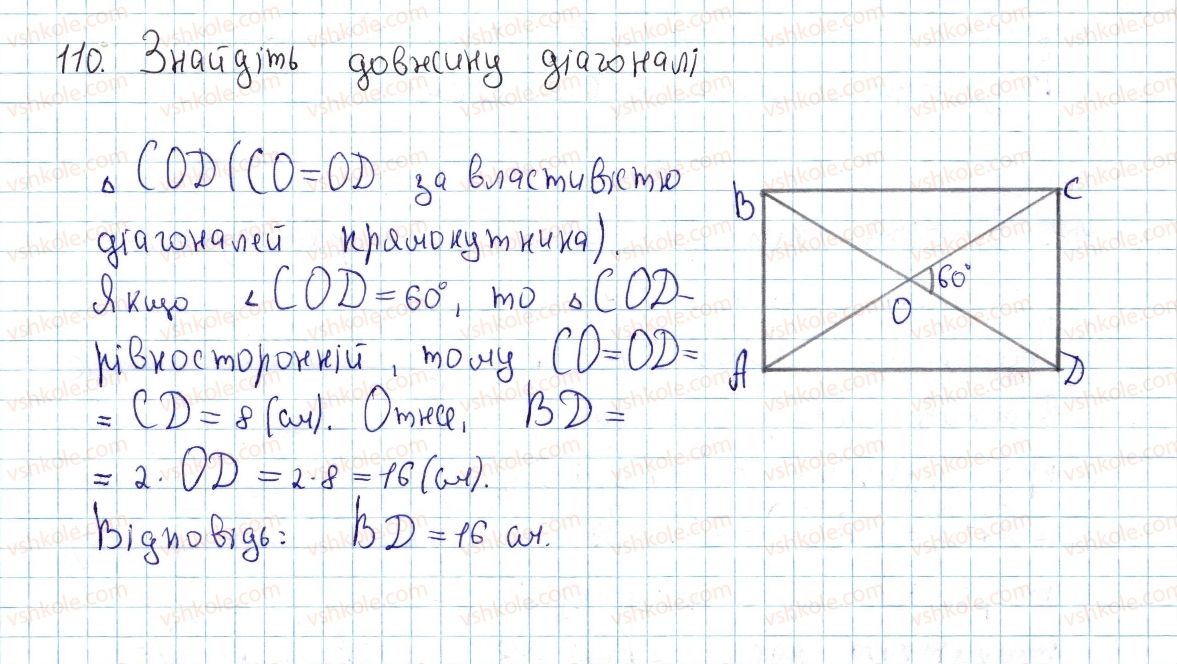 110. Знайдіть довжину діагоналі
△ COD (CO=OD за властивістю
діагоналей прямокутника).
Якщо ∠COD=60°, то △COD-
рівносторонній, тому CO=OD=
= CD = 8 (см). Отже, BD =
= 2·OD = 2·8 = 16 (см).
Відповідь: BD = 16 см.
B
C
60°
O
A
D
vshkole.com